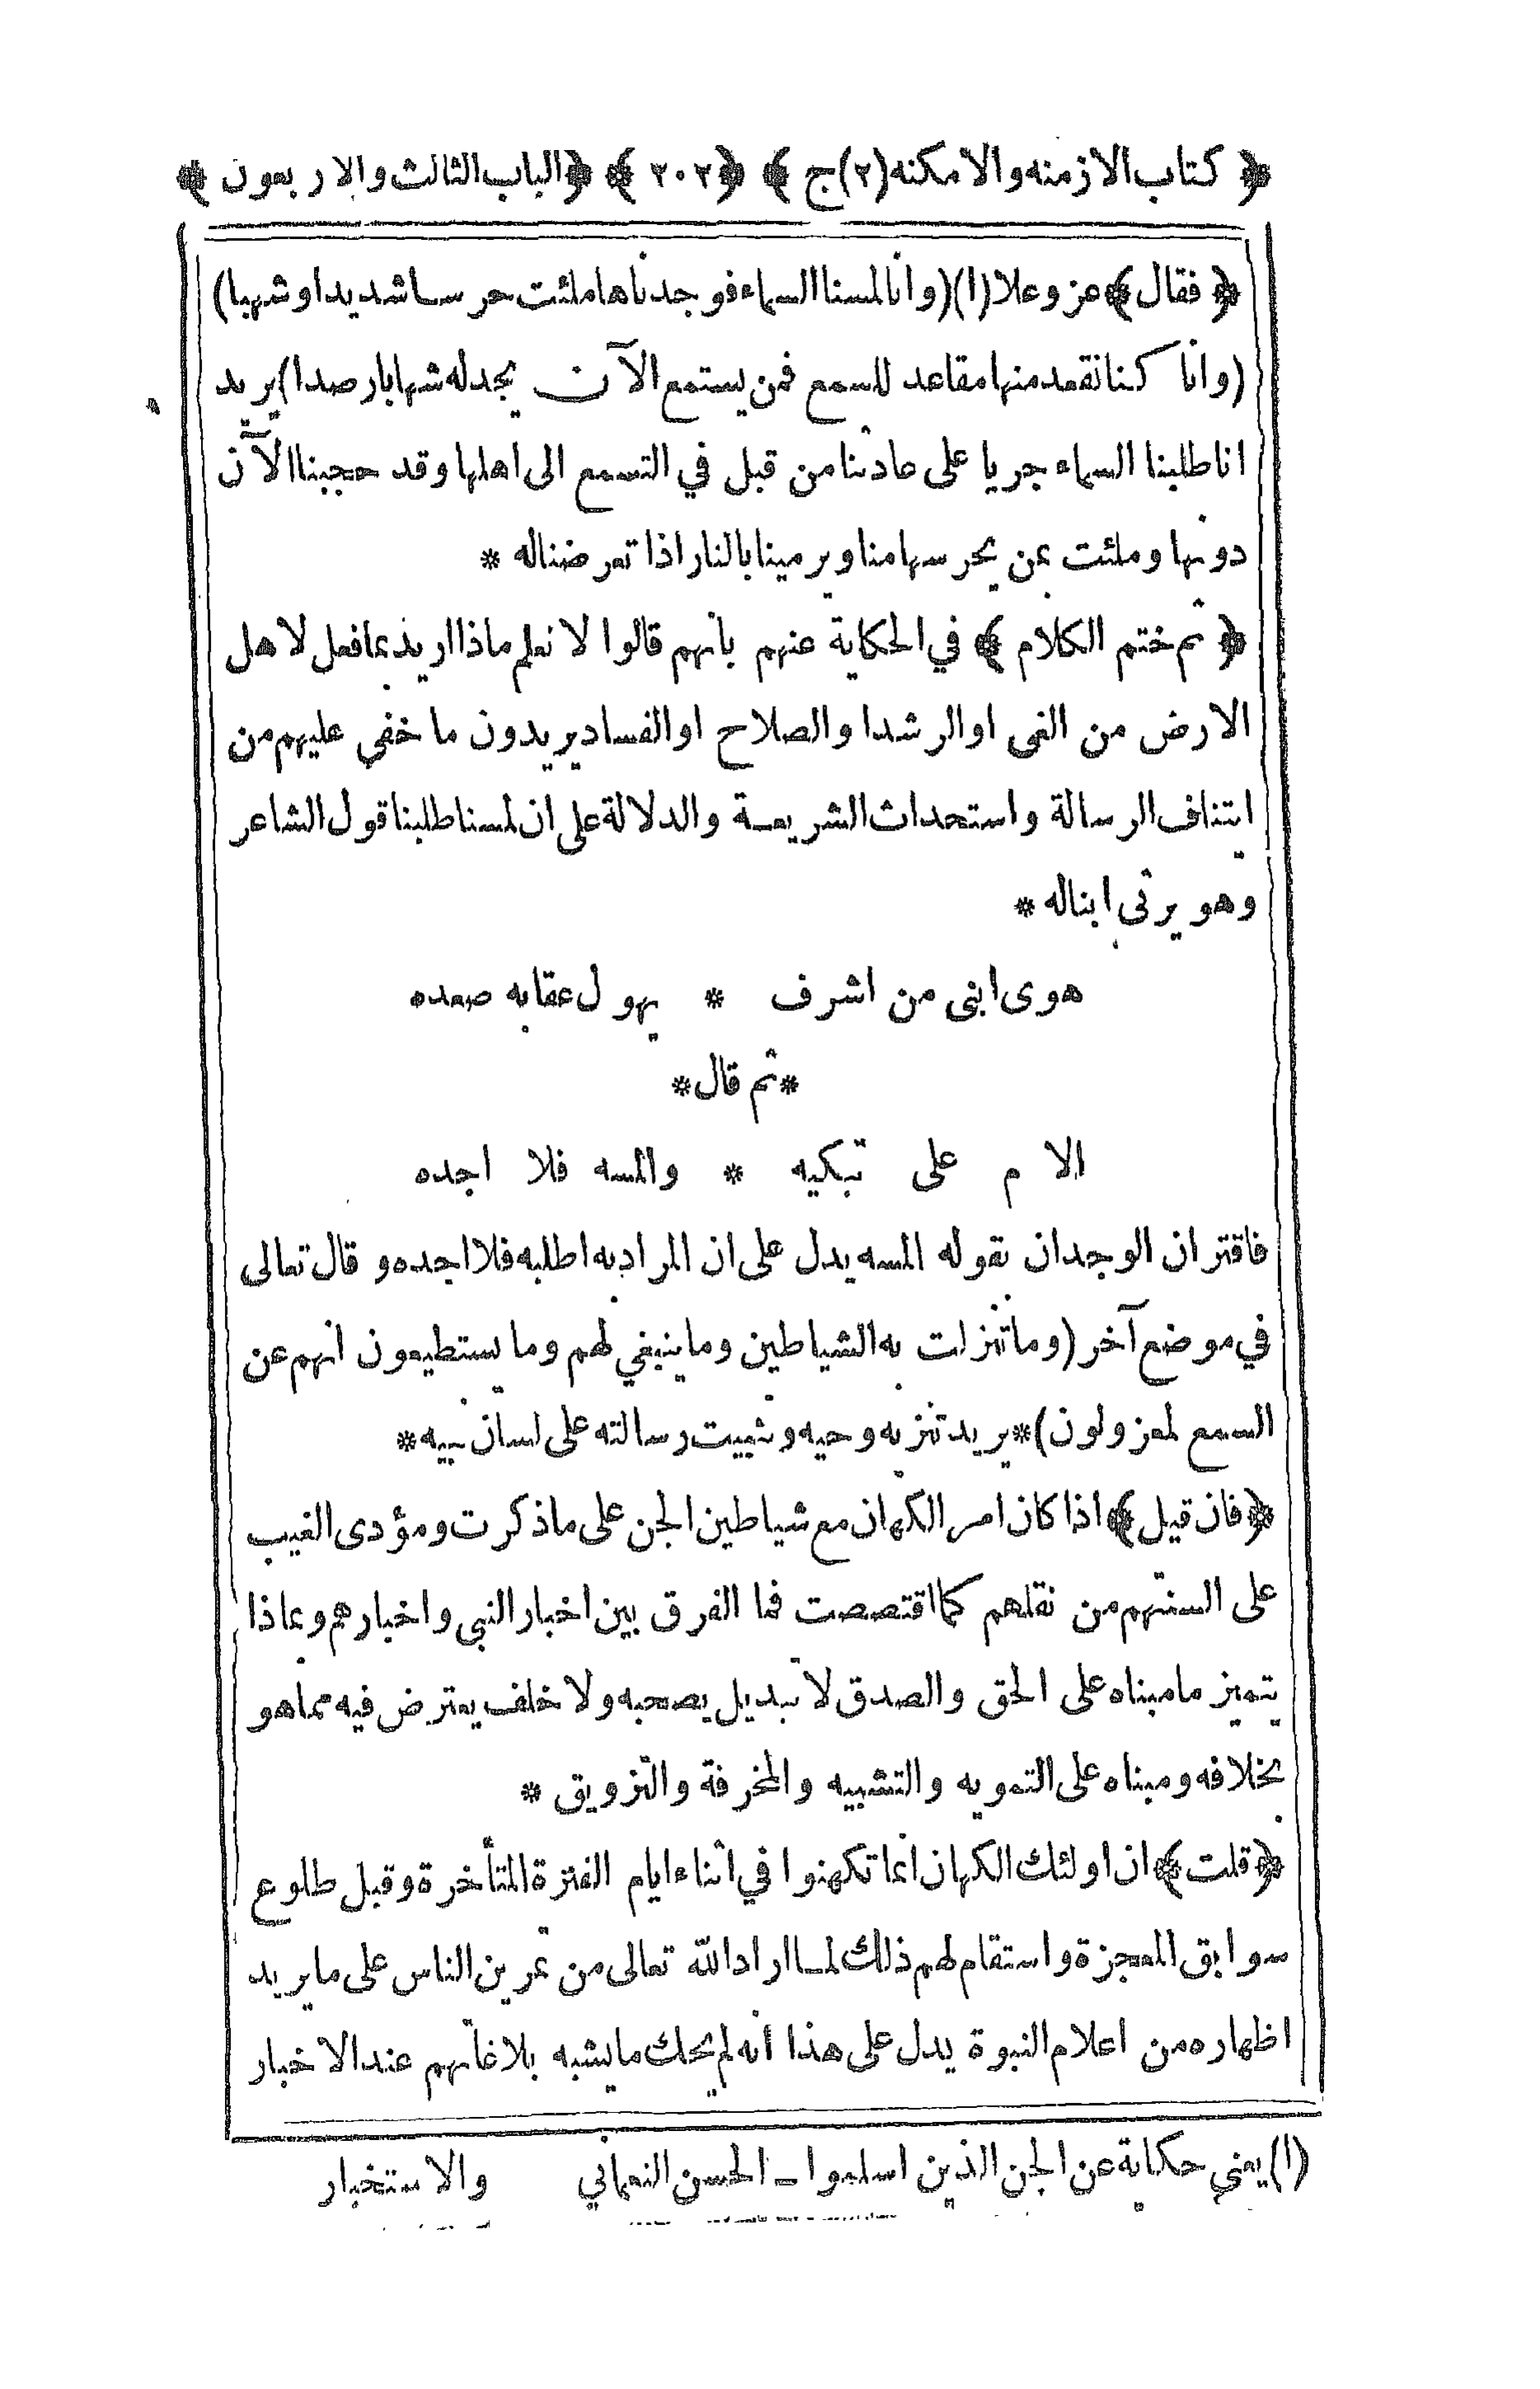 ﴿ كتاب الازمنه والامكنه (٢) ج ﴾ ﴿ ٢٠٢ ﴾ ﴿ الباب الثالث والاربعون ﴾
﴿ فقال ﴾ عز وعلا (١) (وانا لمسنا السماء فوجدناها ملئت حرسا شديدا وشهبا)
(وانا كنا نقعد منها مقاعد للسمع فمن يستمع الآن يجد له شهابا رصدا) يريد
انا طلبنا السماء جريا على عادتنا من قبل في التسمع الى اهلها وقد حجبنا الآن
دونها وملئت بمن يحرسها منا ويرمينا بالنار اذا تعرضنا له *
﴿ ثم ختم الكلام ﴾ في الحكاية عنهم بانهم قالوا لا نعلم ماذا اريد بما فعل لاهل
الارض من الغى او الرشدا والصلاح او الفساد يريدون ما خفي عليهم من
ايتناف الرسالة واستحداث الشريعة والدلالة على ان لمسنا طلبنا قول الشاعر
وهو يرثى ابنا له *
هوى ابنى من اشرف * يهول عقابه صعده
* ثم قال *
الام على تبكيه * والمسه فلا اجده
فاقتران الوجدان بقوله المسه يدل على ان المراد به اطلبه فلا اجده وقال تعالى
في موضع آخر (وما تنزلت به الشياطين وما ينبغي لهم وما يستطيعون انهم عن
السمع لمعزولون) * يريد تنزيه وحيه وتثبيت رسالته على لسان نبيه *
﴿ فان قيل ﴾ اذا كان امر الكهان مع شياطين الجن على ما ذكرت ومؤدى الغيب
على السنتهم من نقلهم كما اقتصصت فما الفرق بين اخبار النبي واخبارهم وبماذا
يتميز ما مبناه على الحق والصدق لا تبديل يصحبه ولا خلف يعترض فيه مما هو
بخلافه ومبناه على التمويه والتشبيه والمخرفة والتزويق *
﴿ قلت ﴾ ان اولئك الكهان انما تكهنوا في اثناء ايام الفترة المتأخرة وقبل طلوع
سوابق المعجزة واستقام لهم ذلك لما اراد الله تعالى من تمرين الناس على ما يريد
اظهاره من اعلام النبوة يدل على هذا انه لم يحك ما يشبه بلاغاتهم عند الاخبار
(١) يعني حكاية عن الجن الذين اسلموا ـ الحسن النعماني والاستخبار